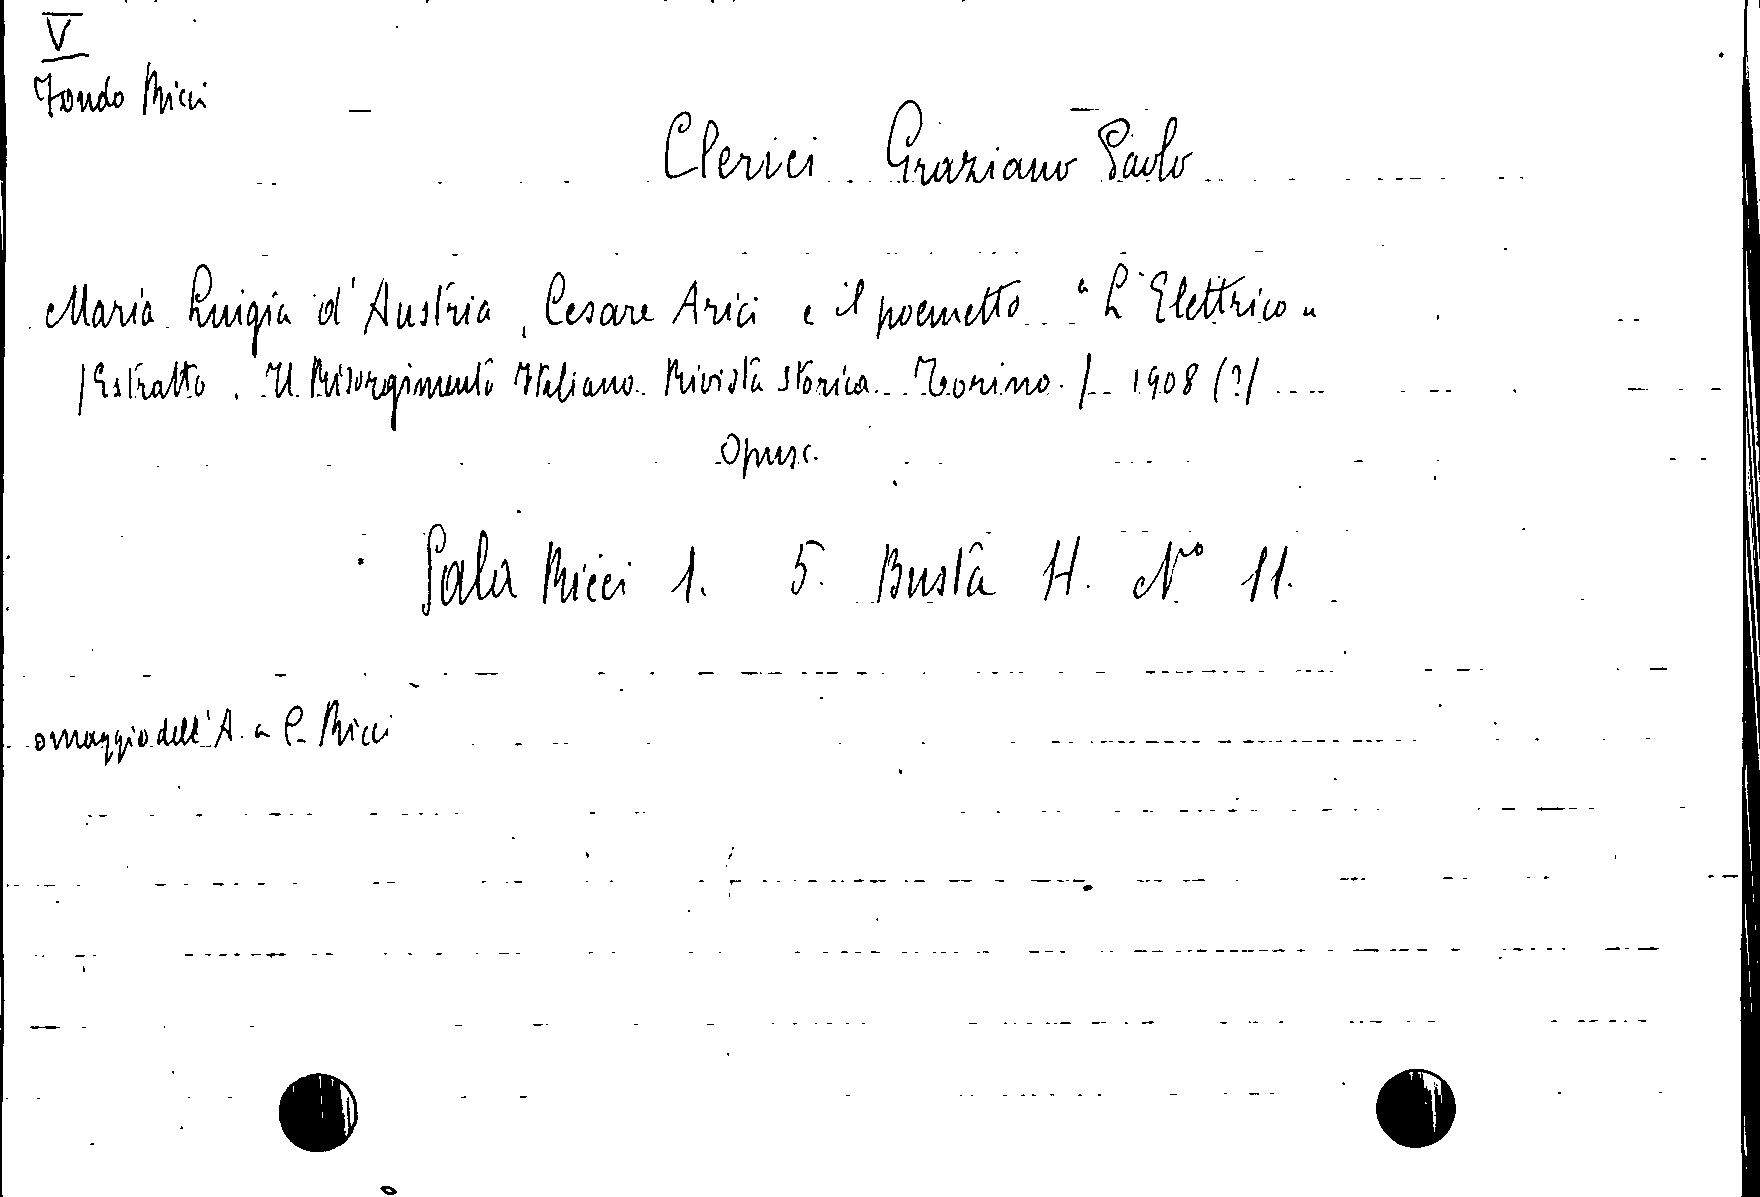 V
Fondo Ricci
Clerici Graziano Paolo
Maria Luigia d'Austria, Cesare Arici e il poemetto "L'Elettrico"
/Estratto. Il Risorgimento Italiano. Rivista storica. Torino./ 1908 (?/
Opusc.
Sala Ricci 1. 5. Busta H. N° 11.
omaggio dell'A. a C. Ricci